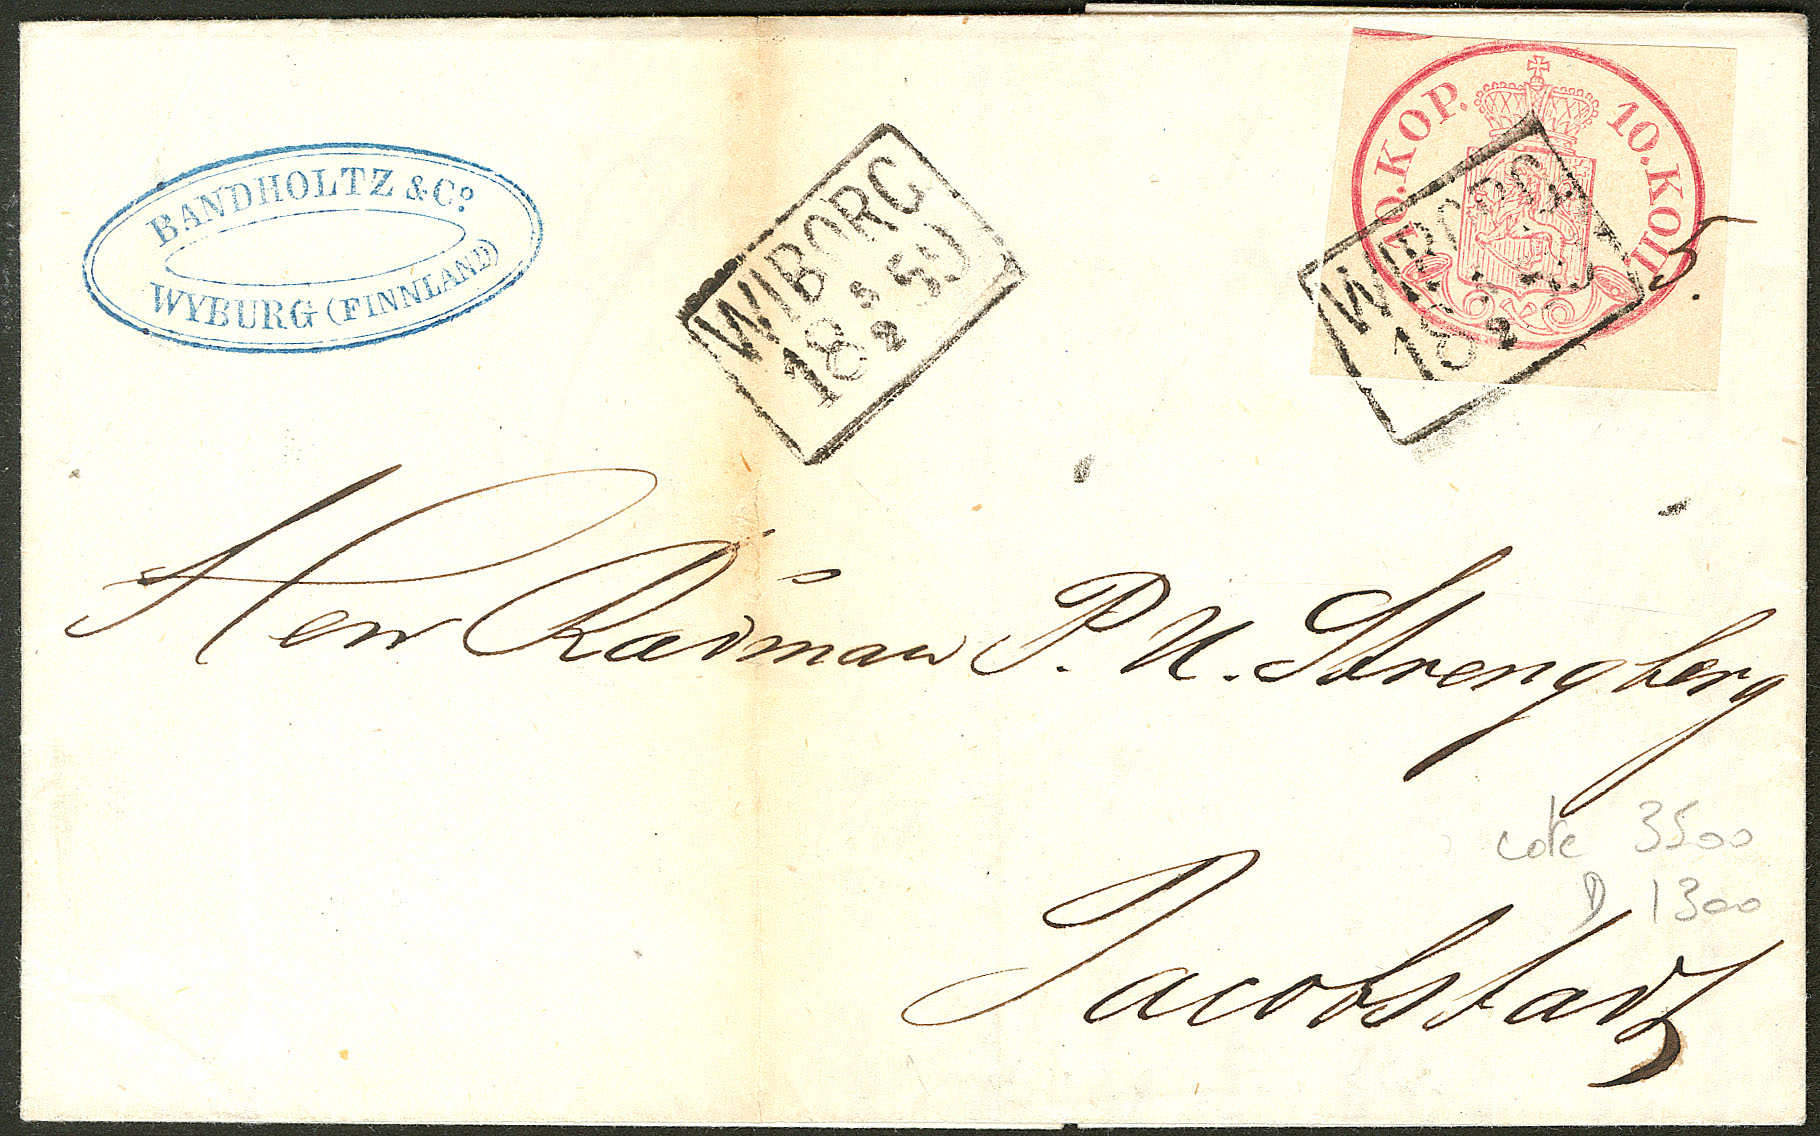 BANDHOLTZ & Cº
WYBURG (FINNLAND)
WIBORG
18 5/2 59
10.KOP. 10.КОП.
WIBORG
18 5/2
5.
Herr Radman P. U. Strengberg
cote 3500
D 1300
Jacobstad